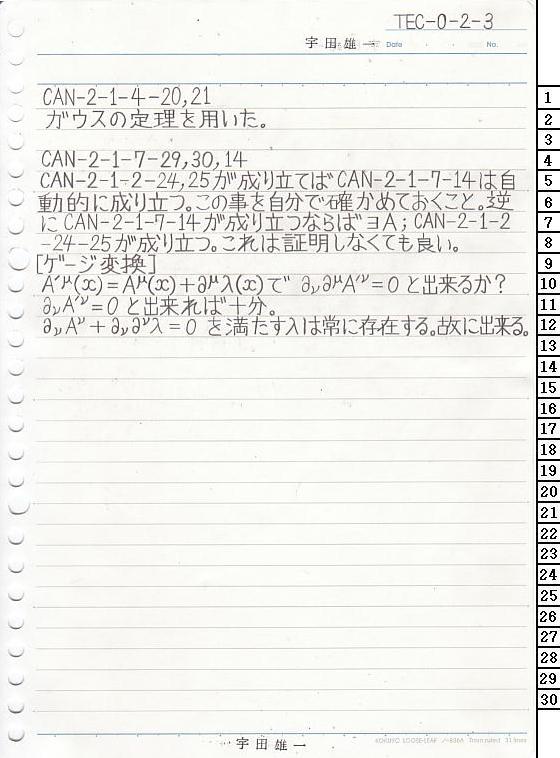 TEC-0-2-3
宇田雄一 Date No.
CAN-2-1-4-20,21
ガウスの定理を用いた。
CAN-2-1-7-29,30,14
CAN-2-1-2-24,25が成り立てばCAN-2-1-7-14は自
動的に成り立つ。この事を自分で確かめておくこと。逆
にCAN-2-1-7-14が成り立つならば∃A;CAN-2-1-2
-24-25が成り立つ。これは証明しなくても良い。
[ゲージ変換]
A'^μ(x)=A^μ(x)+∂^μλ(x)で ∂_ν∂^μA'^ν=0と出来るか?
∂_νA'^ν=0と出来れば十分。
∂_νA^ν+∂_ν∂^νλ=0を満たすλは常に存在する。故に出来る。
宇田雄一
KOKUYO LOOSE-LEAF ノ-836A 7mm ruled 31 lines
1
2
3
4
5
6
7
8
9
10
11
12
13
14
15
16
17
18
19
20
21
22
23
24
25
26
27
28
29
30